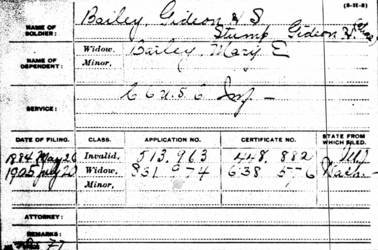 (3-1-2)
NAME OF SOLDIER: Bailey, Gideon H S
Stump, Gideon H. alias
NAME OF DEPENDENT: Widow, Bailey, Mary E
Minor,
SERVICE: C 6 U.S.C. Inf.
DATE OF FILING. CLASS. APPLICATION NO. CERTIFICATE NO. STATE FROM WHICH FILED.
1884 May 26 Invalid, 513.963 448.882
1905 July 20 Widow, 831.974 638.576 Wash.
Minor,
ATTORNEY:
REMARKS: